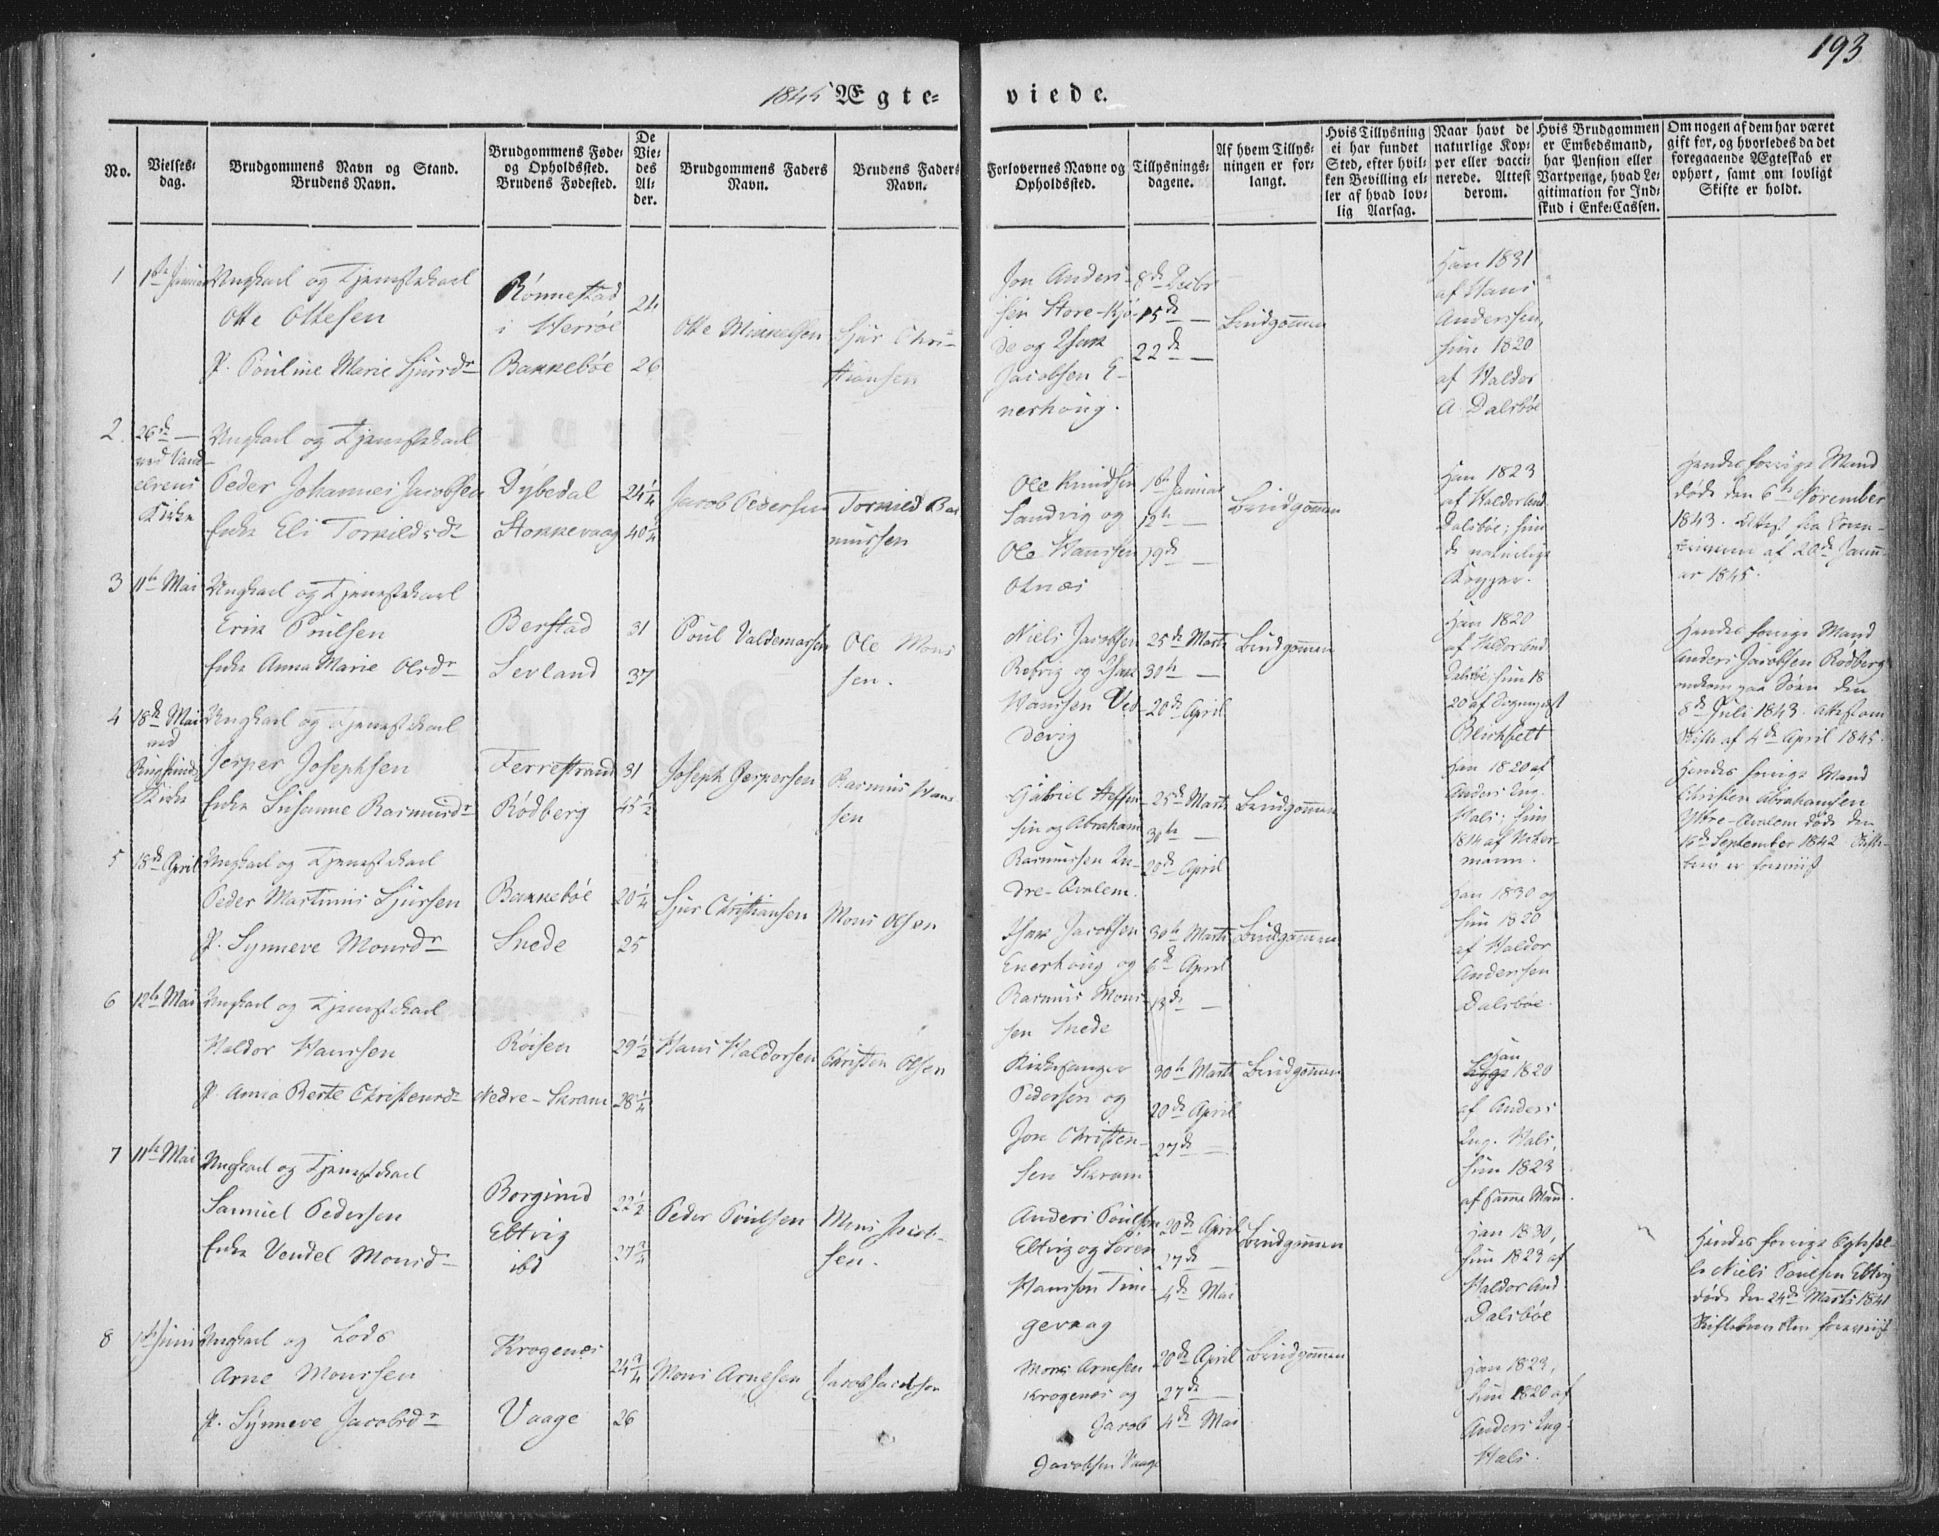 193
1845 Ægte= viede.
No.
Vielses=
dag.
Brudgommens Navn og Stand.
Brudens Navn.
Brudgommens Føde=
og Opholdssted.
Brudens Fødested.
De
Vie=
des
Al=
der.
Brudgommens Faders
Navn.
Brudens Faders
Navn.
Forlovernes Navne og
Opholdssted.
Tillysnings=
dagene.
Af hvem Tillys=
ningen er for=
langt.
Hvis Tillysning
ei har fundet
Sted, efter hvil=
ken Bevilling el=
ler af hvad lov=
lig Aarsag.
Naar havt de
naturlige Kop=
per eller vacci=
nerede. Attest
derom.
Hvis Brudgommen
er Embedsmand,
har Pension eller
Vartpenge, hvad Le=
gitimation for Ind=
skud i Enke=Cassen.
Om nogen af dem har været
gift før, og hvorledes da det
foregaaende Ægteskab er
ophørt, samt om lovligt
Skifte er holdt.
1
1ste Januar
Ungkarl og Tjenestekarl
Otte Ottesen
P. Pouline Marie Sjursdr
Rönnestad
i Herröe
Bakkebøe
24
26
Otte Mikkelsen
Sjur Chri-
stiansen
Jon Anders-
sen Store-Kjö-
de og Isak
Jacobsen E-
nerhoug.
8de Decbr
15de —
22de —
Brudgommen
Han 1831
af Hans
Anderssen,
hun 1820
af Haldor
A. Dalsböe
2.
26de —
ved Vand-
elvens
Kirke
Ungkarl og Tjenestekarl
Peder Johannes Jacobsen
Enke Eli Torkildsdr
Dybedal
Stokkevaag
24 1/4
40 3/4
Jacob Pedersen
Torkild Ras-
mussen
Ole Knudsen
Sandvig og
Ole Hanssen
Otnæs
1ste Januar
12te —
19de —
Brudgommen
Han 1823
af Haldor And.
Dalsböe; hun
de naturlige
Kopper.
Hendes forrige Mand
døde den 6te November
1843. Attest fra Soren-
skriveren af 20de Janu-
ar 1845.
3
11te Mai
Ungkarl og Tjenestekarl
Erik Poulsen
Enke Anna Marie Olsdr
Berstad
Sevland
31
37
Poul Valdemarsen
Ole Mons-
sen.
Niels Jacobsen
Refvig og Isak
Hanssen Ved-
devig
25de Marts
30te —
20de April
Brudgommen
Han 1820
af Haldor And.
Dalsböe, hun 18
20 af Sognepræst
Blichfelt
Hendes forrige Mand
Anders Jacobsen Rødberg
omkom paa Søen den
8de Juli 1843. Attest om
Skifte af 4de April 1845.
4
18de Mai
ved
Kirke
Ungkarl og Tjenestekarl
Jesper Josephsen
Enke Susanne Rasmusdr
Ferrestrand
Rödberg
31
45 1/2
Joseph Jespersen
Rasmus Hans-
sen
Gabriel Steffen-
sen og Abraham
Rasmussen In-
dre-Qvalem.
25de Marts
30te —
20de April
Brudgommen
Han 1820 af
Anders Ing.
Hals; hun
1814 af
mann.
Hendes forrige Mand
Christen Abrahamsen
Ytre-Qvalem døde den
16de September 1842. Skifte-
brev er foreviist
5
18de April
Ungkarl og Tjenestekarl
Peder Martinus Sjursen
P. Synneve Monsdr
Bakkebøe
Snede
20 1/4
25
Sjur Christiansen
Mons Olsen
Isak Jacobsen
Enerhoug og
Rasmus Mons-
sen Snede
30te Marts
6te April
13de —
Brudgommen
Han 1830 og
hun 1820
af Haldor
Anderssen
Dalsböe.
6
12te Mai
Ungkarl og Tjenestekarl
Haldor Hanssen
P. Anna Berte Christensdr
Röisen
Nedre-Skram
29 1/2
28 1/4
Hans Haldorsen
Christen Olsen
Kirkesanger
Pedersen og
Jon Christen-
sen Skram
30te Marts
20de April
27de —
Brudgommen
Han
1820
af Anders
Ing. Hals,
hun 1823
af samme Mand.
7
11te Mai
Ungkarl og Tjenestekarl
Samuel Pedersen
Enke Vendel Monsdr
Borgund
Eltvig
ibd
22 1/2
27 3/4
Peder Poulsen
Mons Jacob-
sen.
Anders Poulsen
Eltvig og Søren
Hanssen Tun-
gevaag
20de April
27de —
4de Mai
Brudgommen
Han 1830,
hun 1823 af
Haldor And.
Dalsböe
Hendes forrige Egtefæl-
le Niels Poulsen Eltvig
døde den 24de Marts 1841
Skiftebrev blev foreviist
8
1ste Juni
Ungkarl og Lods
Arne Monssen
P. Synneve Jacobsdr
Krogenes
Vaage
24 3/4
26
Mons Arnesen
Jacob Jacobsen
Mons Arnesen
Krogenes og
Jacob
Jacobsen Vaage
20de April
27de —
4de Mai
Brudgommen
Han 1823,
hun 1820 af
Anders Ing.
Hals.